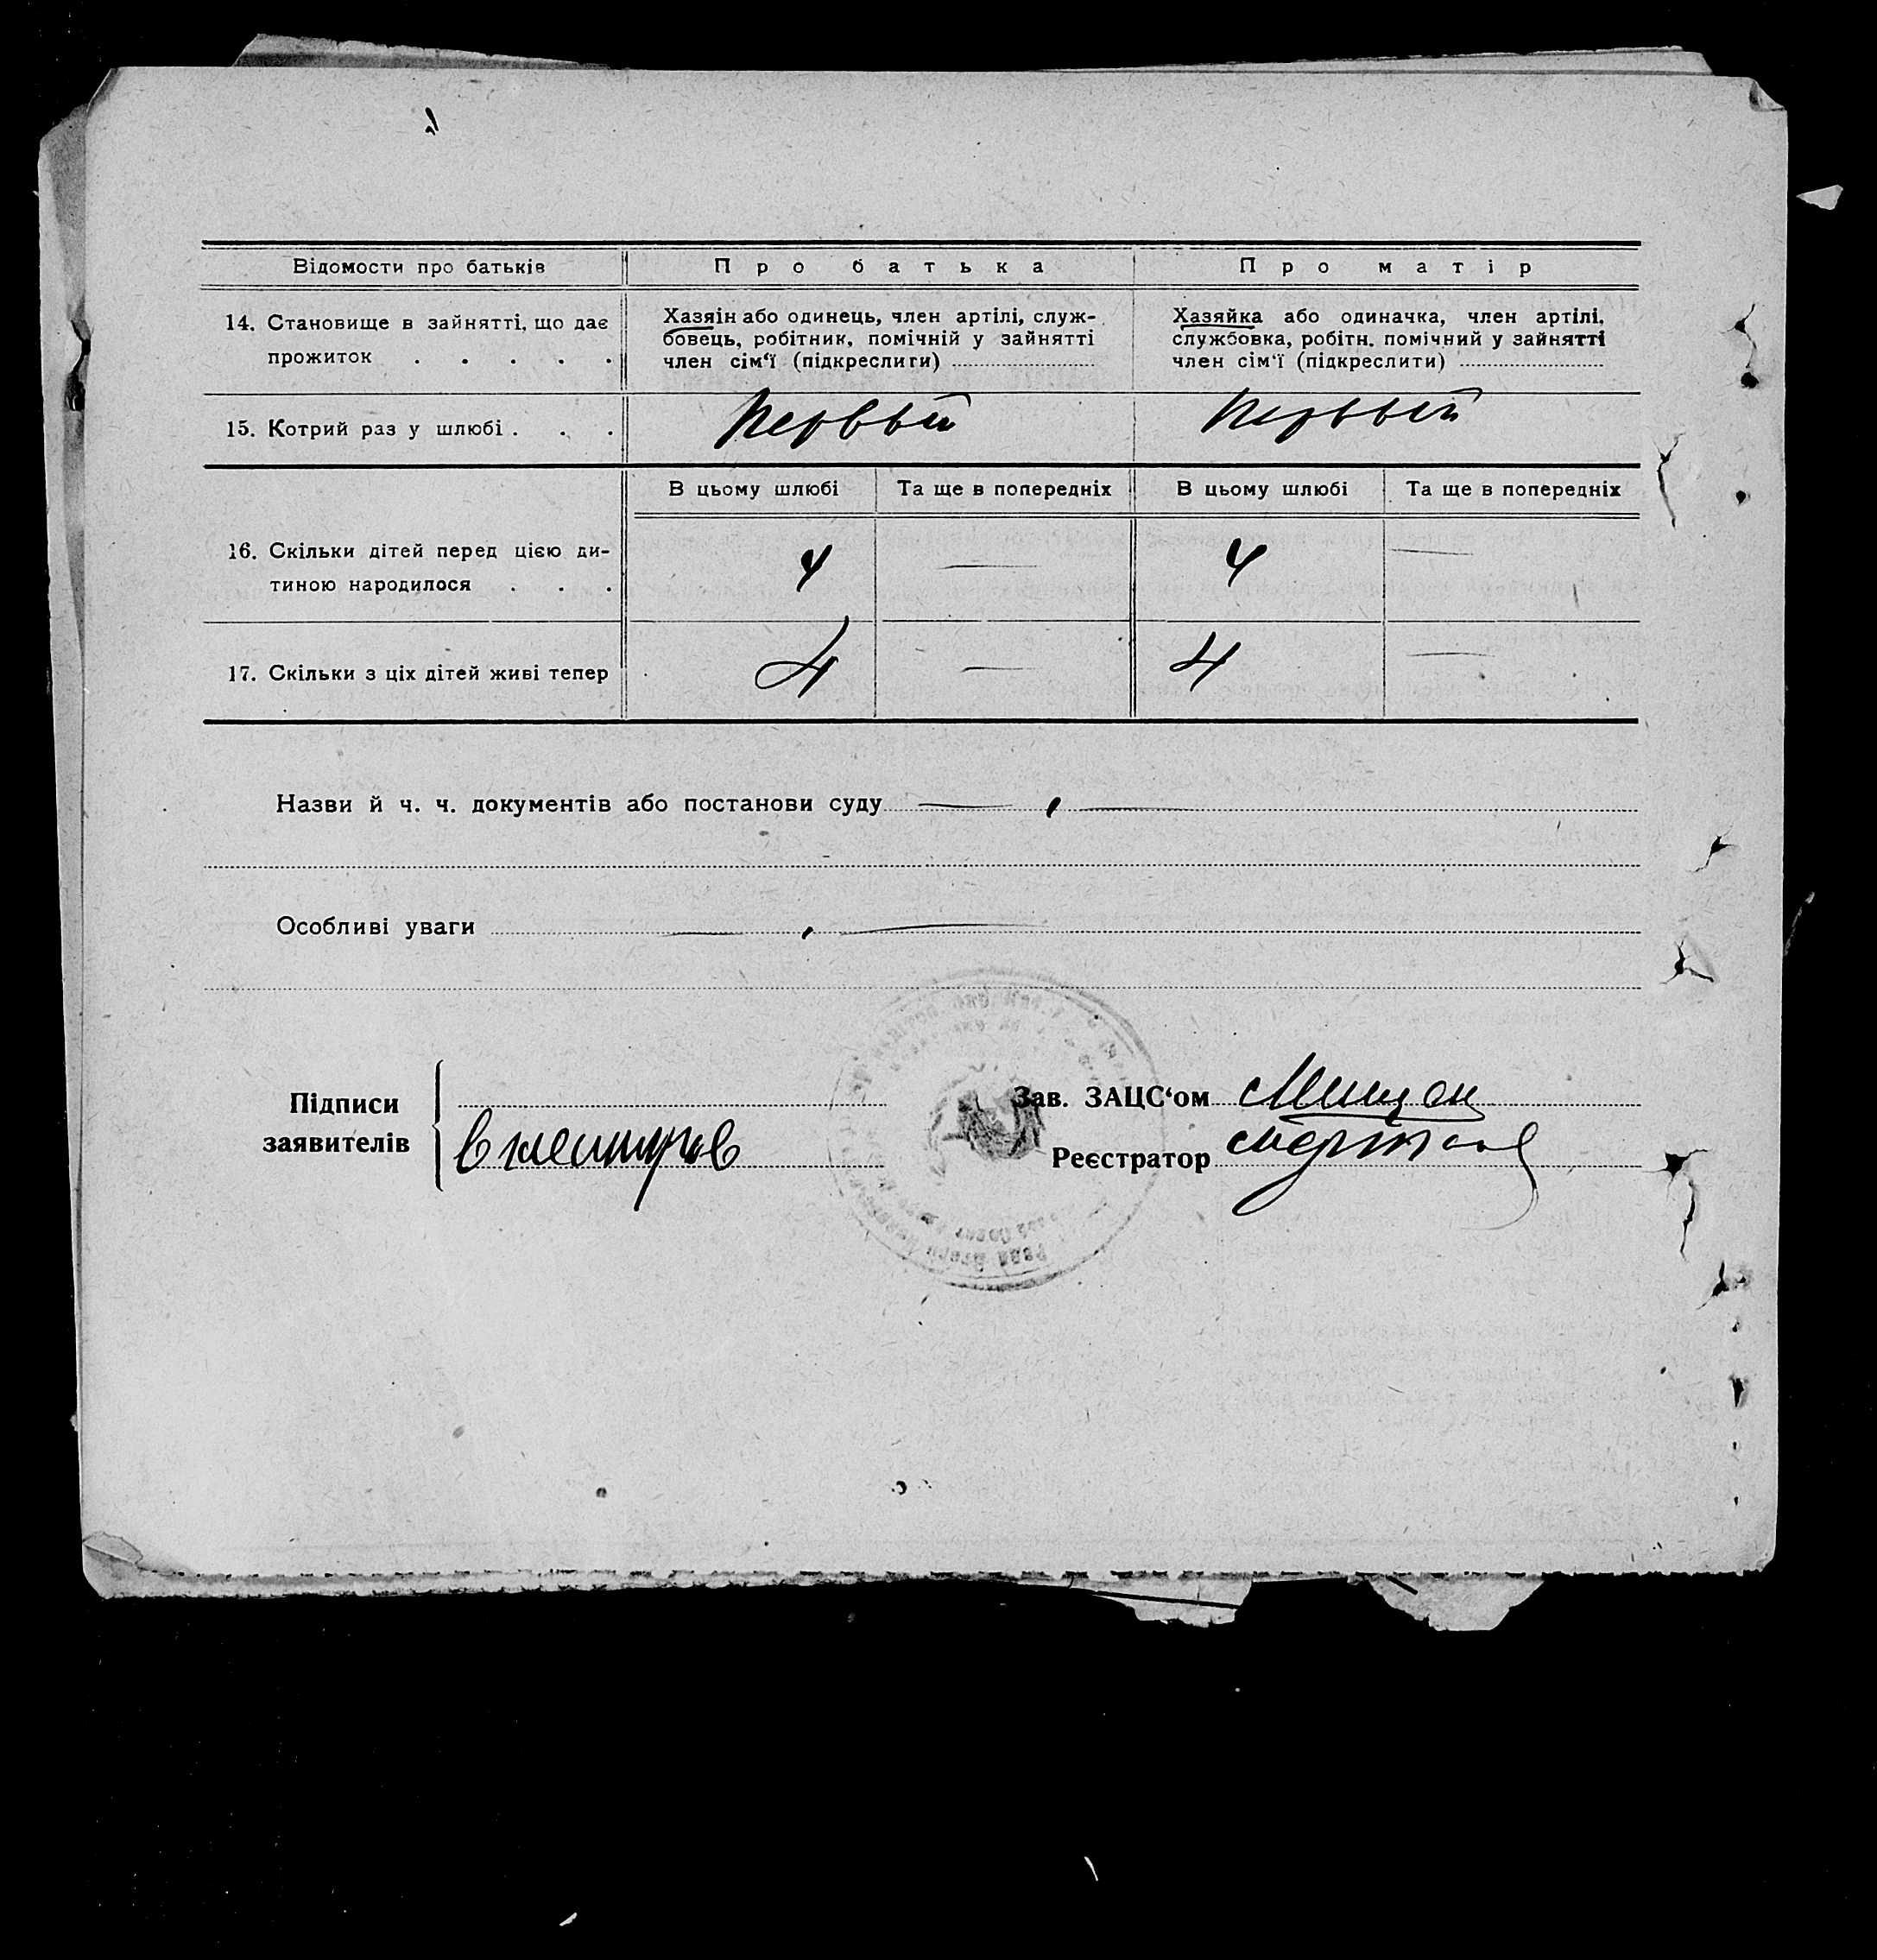 Відомости про батьків
Про батька
Про матір
14. Становище в зайнятті, що дає
прожиток . . . . .
Хазяін або одинець, член артілі, служ-
бовець, робітник, помічній у зайнятті
член сім‘ї (підкреслиги)
Хазяйка або одиначка, член артілі,
службовка, робітн. помічний у зайнятті
член сім‘ї (підкреслити)
15. Котрий раз у шлюбі . . .
Первый
Первый
В цьому шлюбі
Та ще в попередніх
В цьому шлюбі
Та ще в попередніх
16. Скільки дітей перед цією ди-
тиною народилося . . .
4
—
4
—
17. Скільки з ціх дітей живі тепер
4
—
4
—
Назви й ч. ч. документів або постанови суду
Особливі уваги
Підписи
заявителів
Зав. ЗАЦС‘ом
Реєстратор